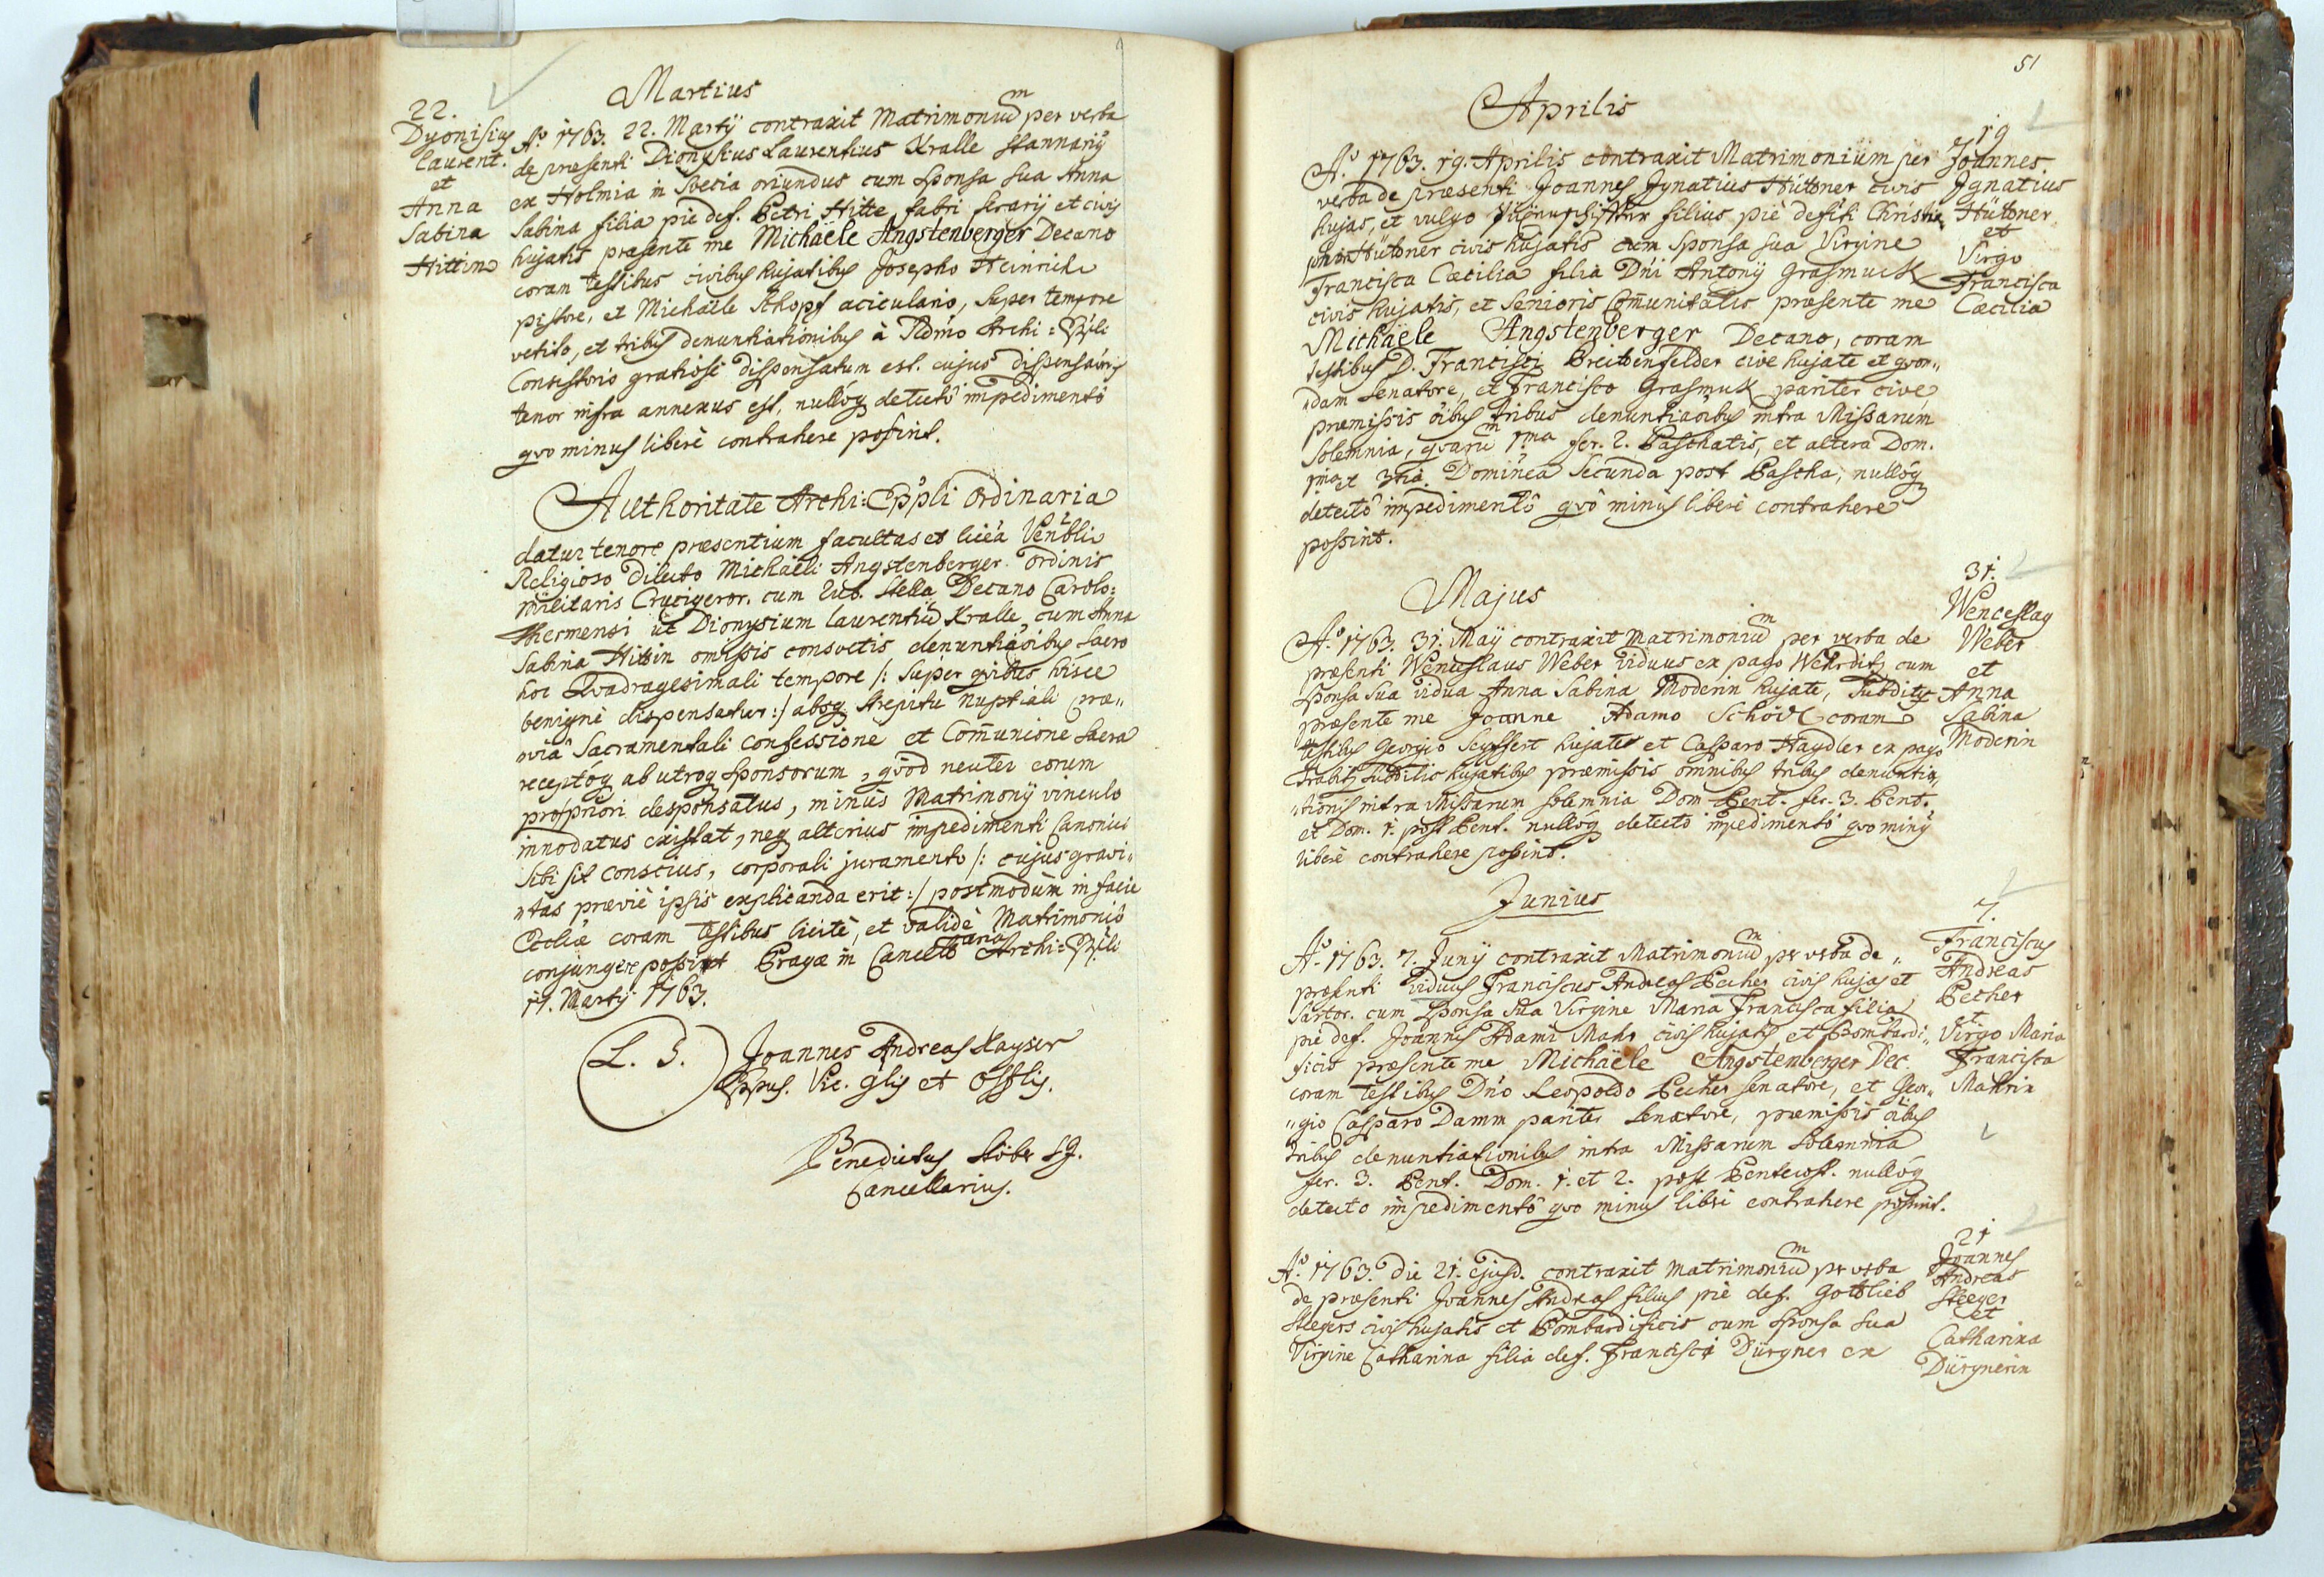 Martius
22.
Dyonisiꝰ
Laurent.
et
Anna
Sabina
Hittin
Aº 1763. 22. Martÿ contraxit Matrimoniũm per verba
de præsenti Dionysius Laurentius Kralle Stannariÿ
ex Holmia in Svecia oriundus cum Sponsa sua Anna
Sabina filia pie def. Petri Hitte fabri ferarÿ et civis
hujatis præsente me Michaële Angstenberger Decano
coram testibus civibus hujatibus Josepho Heinrich
pistore, et Michaële Schopf aciculario, super tempore
vetito, et tribus denuntiationibus à Rdmo Archi: Eppli
Consistorio gratiose dispensatum est. cujus dispensaõnis
tenor infra annexus est, nullóq detectô impedimentô
qvo minus liberè contrahere possint.
Authoritate Archi: Eppli Ordinaria
datur tenore præsentium facultas et licia Venbli
Religioso Dilecto Michaëli Angstenberger Ordinis
Militaris Crucigeror. cum rub. Stella Decano Carolo:
Thermensi ut Dionysium Laurentiũ Kralle, cum Anna
Sabina Hittin omissis consvetis denuntiaõibus sacro
hoc Qvadragesimali tempore /: super qvibus hisce
benignè dispensatur :/ absq strepitu Nuptiali præ„
„viâ Sacramentali Confessione et Comunione Sacra
receptóq ab utroq Sponsorum, qvòd neuter eorum
pro priori desponsatus, minùs Matrimonÿ vinculo
innodatus existat, neq alterius impedimenti Canonici
sibi sit conscius, corporali juramento /: cujus gravi„
„tas præviè ipsis explicanda erit :/ postmodùm in facie
Ecclíæ coram testibus licitè, et validè Matrimoniô
conjungere possit Pragæ in Cancellaria Archi: Eppli
17. Martÿ 1763.
L. S.
Joannes Andreas Kayser
Eppus. Vic. glis et Offlis.
Benedictus Stöbr SJ.
Cancellarius.
51
Aprilis
Aº 1763. 19. Aprilis contraxit Matrimonium per
verba de præsenti Joannes Ignatius Hüttner civis
hujas, et vulgo filius piè defúti Christia
Hüttner civis hujatis cum Sponsa sua Virgine
Francisca Cæcilia filia Dni Antonÿ Grasmuck
civis hujatis, et Senioris Comunitatis præsente me
Michaële Angstenberger Decano, coram
testibus D. Francisci Breittenfelder cive hujate et qvon„
„dam Senatore, et Francisco Grasmuk pariter cive,
præmissis õibus tribus denuntiaõibus intra Missarum
Solemnia, qvarum 1ma fer. 2. Paschatis, et altera Dom.
1ma et 3tia Dominica Secunda post Pascha, nullóq
detectô impedimentô qvô minus liberè contrahere
possint.
19
Joannes
Ignatius
Hüttner
et
Virgo
Francisca
Cæcilia
Majus
Aº 1763. 31. Maÿ contraxit Matrimoniũm per verba de
præsenti Wenceslaus Weber Viduus ex pago Wehrditz cum
Sponsa sua vidua Anna Sabina Moderin hujate,
præsente me Joanne Adamo Schöck coram
testibus Georgio Seyffert hujate et Casparo Haydler ex pago
subditis hujatibus præmissis omnibus tribus denuntia„
„tionis intra Missarum solemnia Dom Pent. fer. 3. Pent.
et Dom. 1. post Pent. nullóq detecto impedimentô qvo minꝰ
liberè contrahere possint.
31.
Wenceslaꝰ
Weber
et
Anna
Sabina
Moderin
Junius
Aº 1763. 7. Junÿ contraxit Matrimoniũm per verba de„
præsenti Viduus Franciscus Andreas Pecher civis hujas et
Sartor. cum Sponsa sua Virgine Maria Francisca filia
pie def. Joannis Adami Mahr civis hujatis et Bombardi„
ficis præsente me Michaële Angstenberger Dec.
coram testibus Dno Leopoldo Pecher Senatore, et Geor„
„gio Casparo Damm pariter Senatore, præmissis õibus
tribus denuntiationibus intra Missarum Solemnia
fer. 3. Pent. Dom. 1. et 2. post Pentecost. nullóq
detecto impedimentô qvo minus liberè contrahere possint.
7.
Franciscus
Andreas
Pecher
et
Virgo Maria
Francisca
Mahrin
Aº 1763. die 21. Ejusd. contraxit Matrimoniũm per verba
de præsenti Joannes Andreas filius piè def. Gottlieb
Steegers civis hujatis et Bombardificis cum Sponsa sua
Virgine Catharina filia def. Francisci Dürgner ex
21
Joannes
Andreas
Steeger
et
Catharina
Dürgnerin